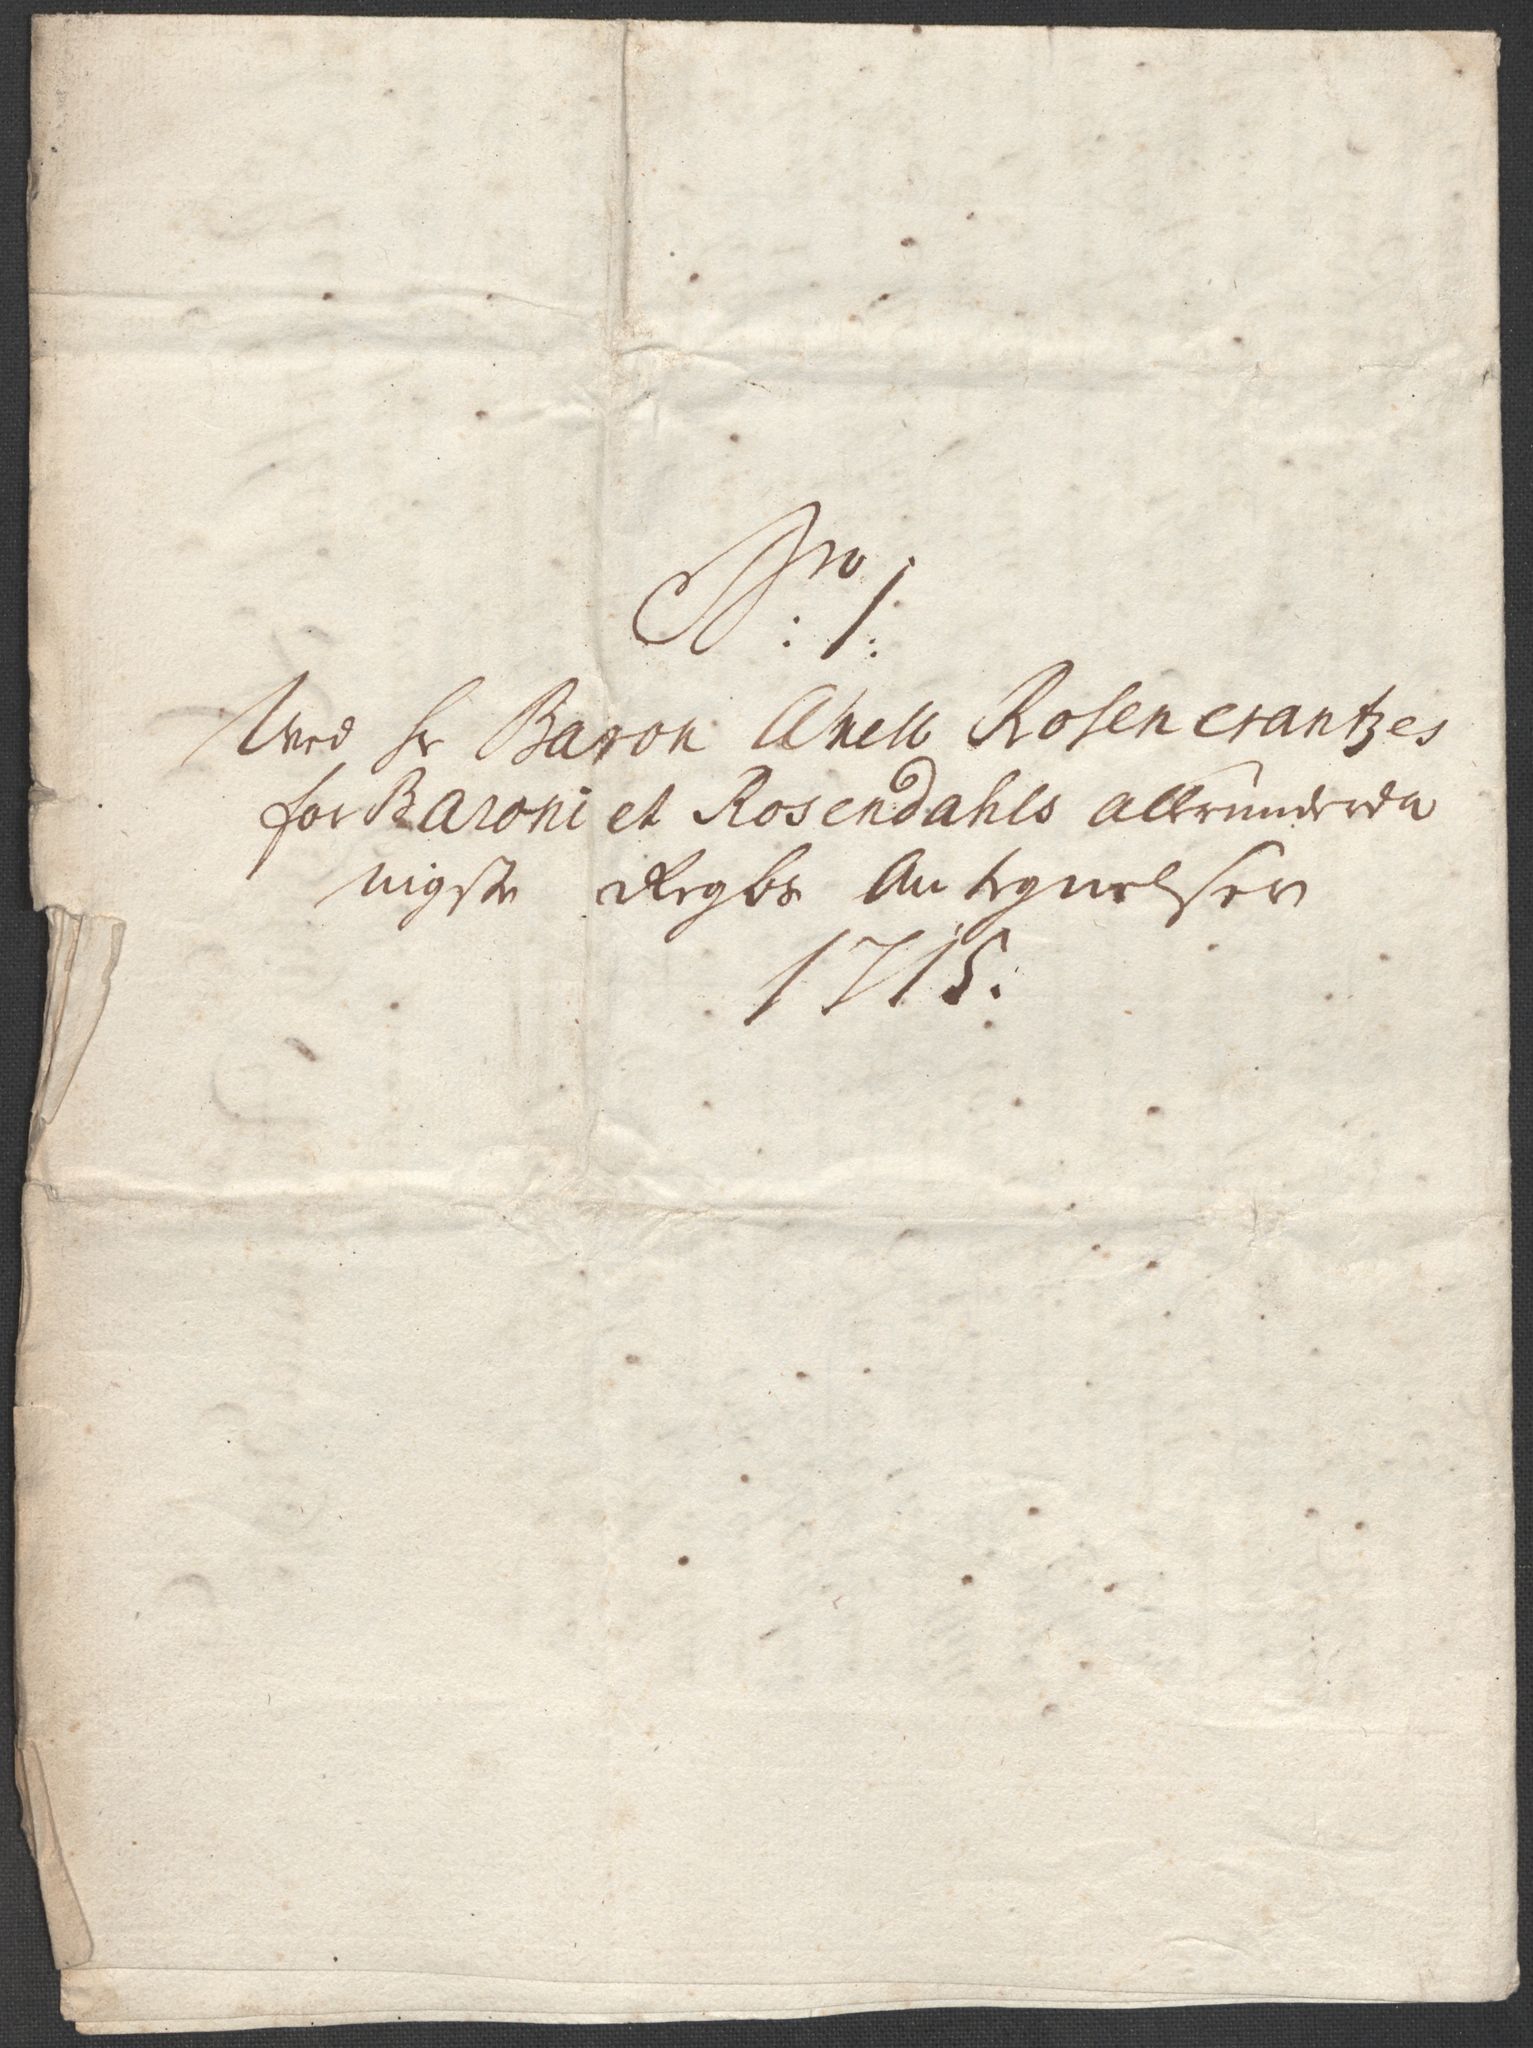 Nro: 1:
Ved hr Baron Axell Rosencrantzes
for Baroniet Rosendahls allerunderda
nigste Regbs Antegnelser
1715.